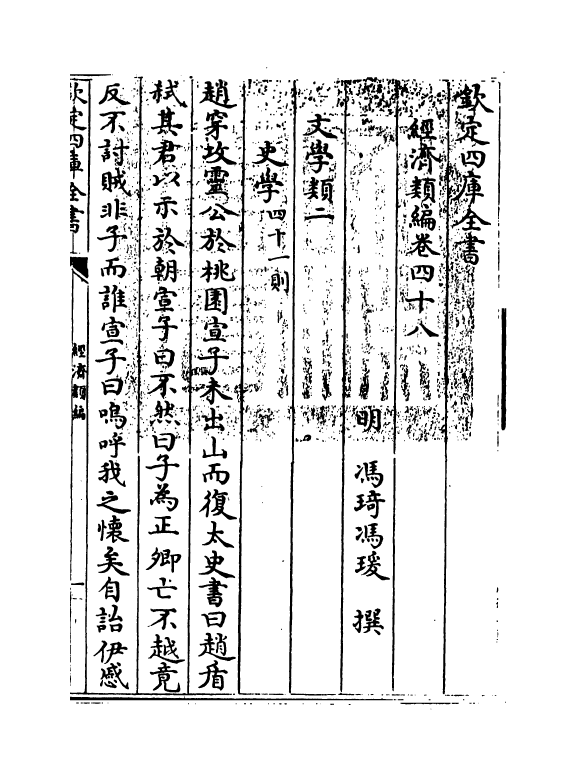 欽定四庫全書
經濟類編卷四十八
明 馮琦馮瑗 撰
文學類二
史學四十一則
趙穿攻靈公於桃園宣子未出山而復太史書曰趙盾
弑其君以示於朝宣子曰不然曰子為正卿亡不越竟
反不討賊非子而誰宣子曰嗚呼我之懷矣自詒伊慼
欽定四庫全書
經濟類編
一